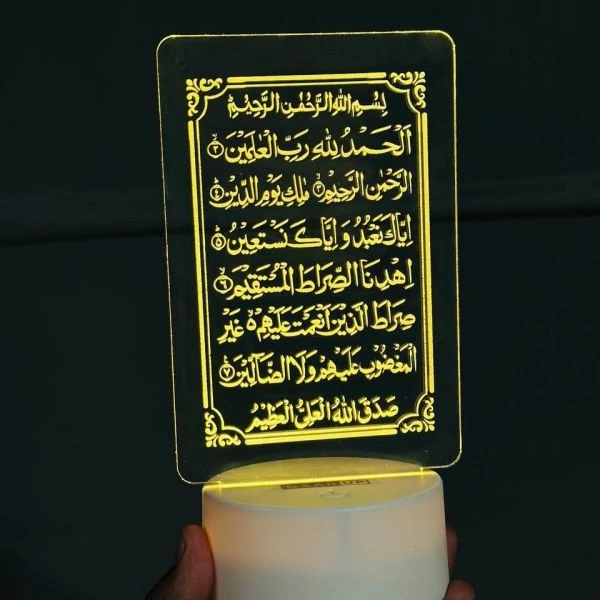 بِسْمِ اللهِ الرَّحْمٰنِ الرَّحِيْمِ
اَلْحَمْدُ لِلّٰهِ رَبِّ الْعٰلَمِيْنَ ۝٢
الرَّحْمٰنِ الرَّحِيْمِ ۝٣ مٰلِكِ يَوْمِ الدِّيْنِ ۝٤
اِيَّاكَ نَعْبُدُ وَ اِيَّاكَ نَسْتَعِيْنُ ۝٥
اِهْدِنَا الصِّرَاطَ الْمُسْتَقِيْمَ ۝٦
صِرَاطَ الَّذِيْنَ اَنْعَمْتَ عَلَيْهِمْ ە غَيْرِ
الْمَغْضُوْبِ عَلَيْهِمْ وَلَا الضَّآلِّيْنَ ۝٧
صَدَقَ اللهُ الْعَلِيُّ الْعَظِيْمُ